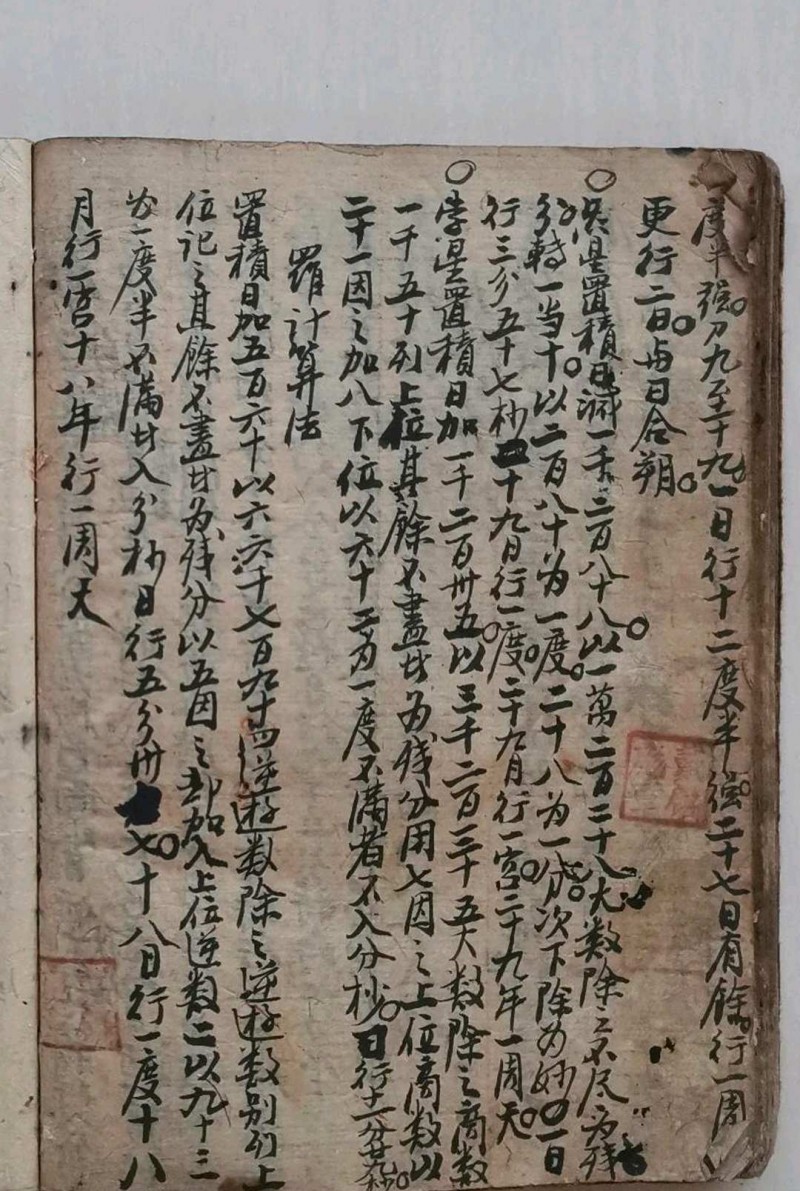 度半强刀九至十九一日行十二度半强二十七日有餘行一周
更行二日与日合朔
炁星置積日減一千三百八十八以一萬二百二十八大数除之不尽为残
分转一当十以二百八十为一度二十八为一分次下除为妙一日
行三分五十七秒二十九日行一度二十九月行一宫二十九年一周天
孛星置積日加一千二百卅五以三千二百三十五大数除之商数
一千五十列上位其餘不盡廿为残分用七因之上位商数以
二十一因之加八下位以六十二为一度不滿者不入分秒日行十一分
羅計算法
置積日加五百六十以六六千七百九十四逆逰数除之逆逰数别列上
位记之其餘不盡廿为残分以五因之却加入上位逆数二以九十三
为一度半不滿廿入分秒日行五分卅七十八日行一度十八
月行一宫十八年行一周天